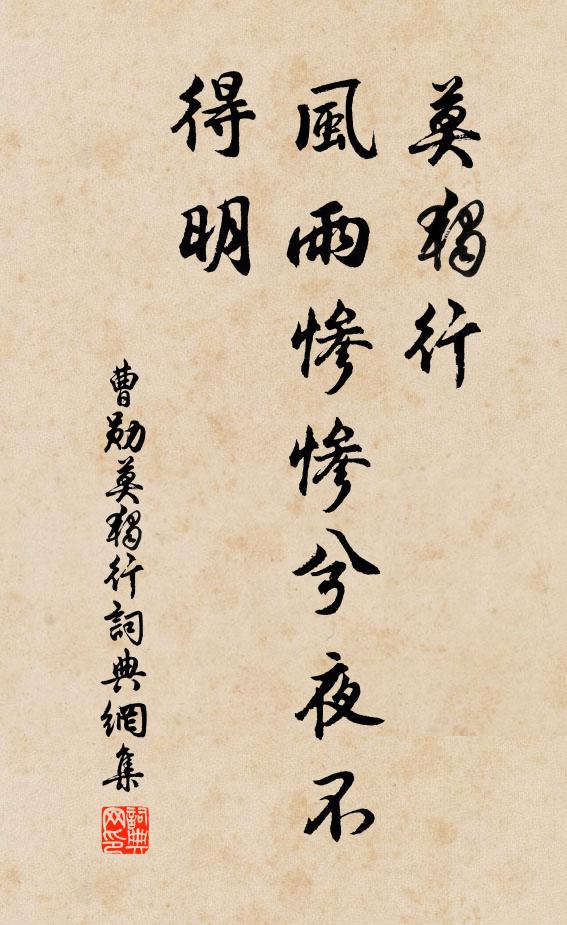 莫獨行
風雨慘慘兮夜不
得明
曹勛莫獨行詞典網集
詞典
网印